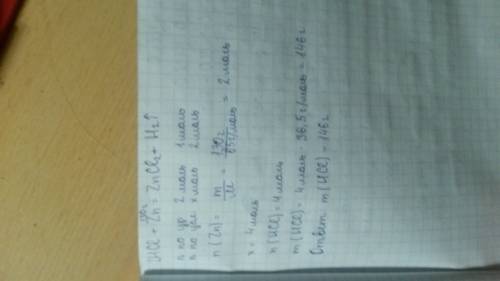 130г
2HCl + Zn = ZnCl₂ + H₂↑
n по ур 2 моль 1 моль
n по усл x моль 2 моль
n (Zn) = m/M = 130г/65г/моль = 2 моль
x = 4 моль
n (HCl) = 4 моль
m (HCl) = 4 моль · 36,5 г/моль = 146 г
Ответ m (HCl) - 146 г